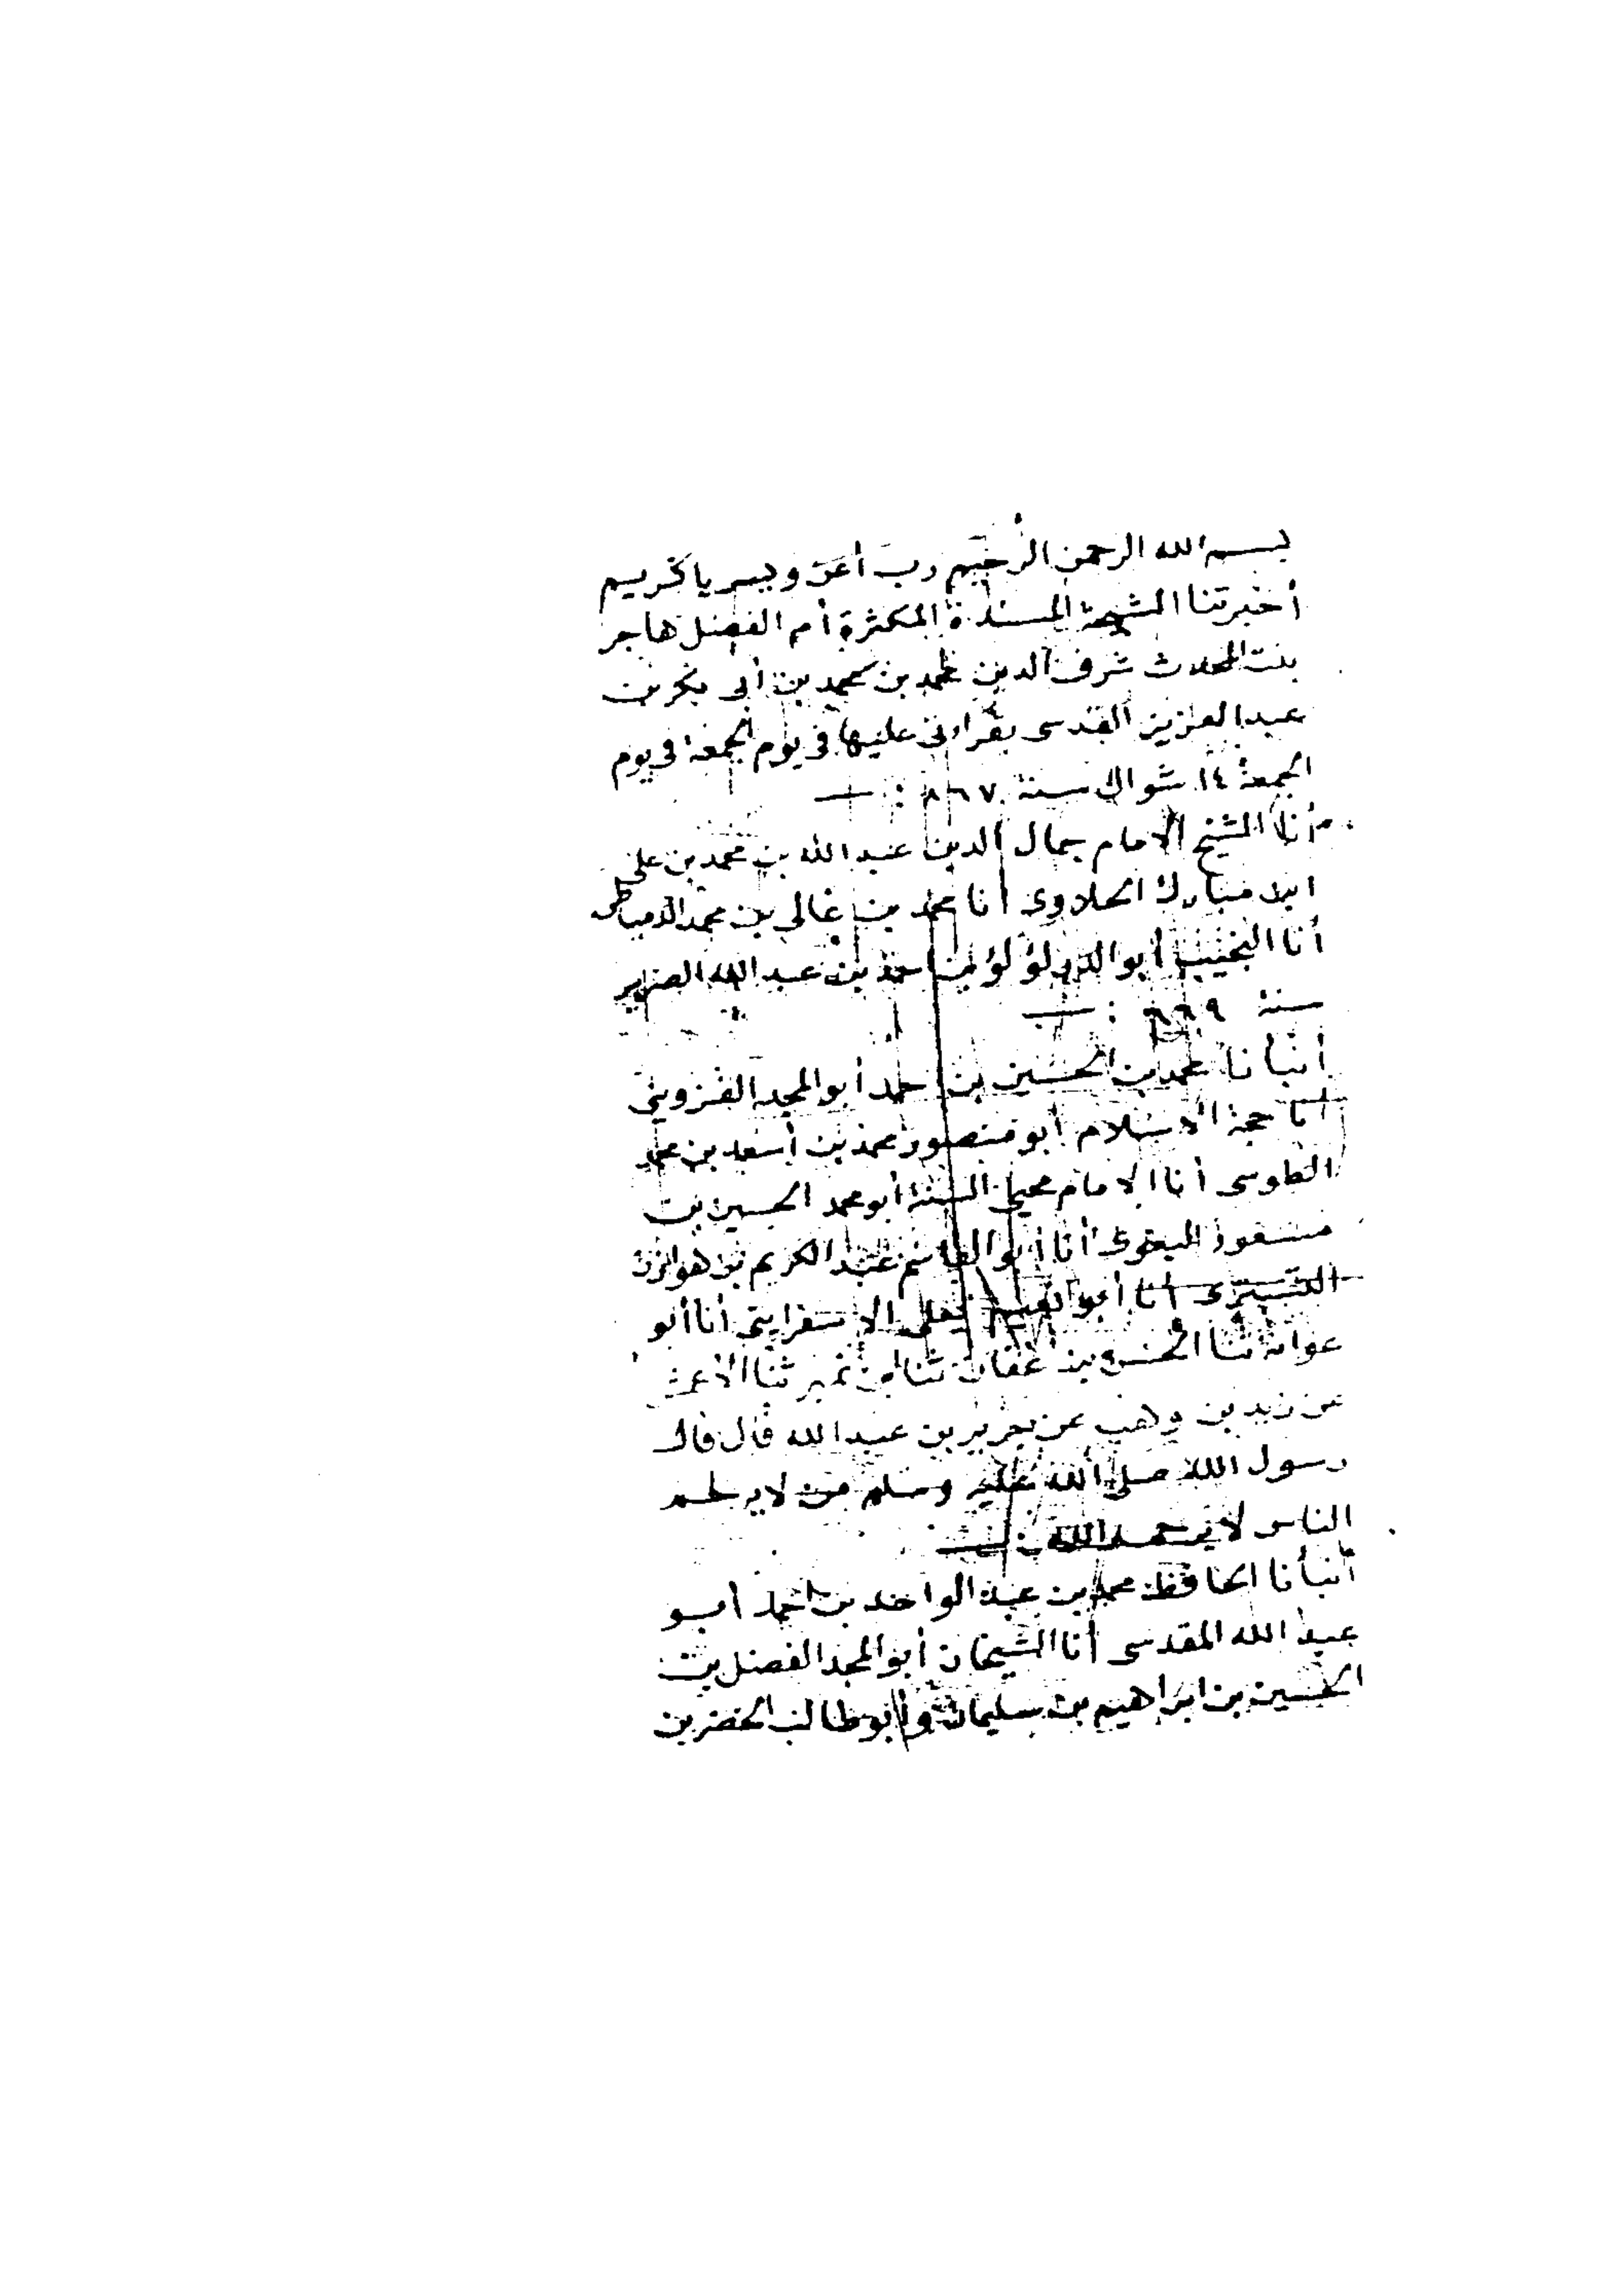 بسم الله الرحمن الرحيم رب أعن ويسر يا كريم
أخبرتنا الشيخة المسندة المكثرة أم الفضل هاجر
بنت المحدث شرف الدين محمد بن محمد بن أبى بكر بن
عبد العزيز القدسى بقراءتى عليها فى يوم الجمعة فى يوم
الجمعة ١٤ شوال سنة ٨٦٧ :
أنا الشيخ الامام جمال الدين عبد الله بن محمد بن على
ابن مبارك الحلاوى أنا محمد بن غالى بن محمد الدمياطى
أنا النجيب أبو الدر لؤلؤ بن أحمد بن عبد الله الضرير
سنة ٦٦٩ :
أنبأنا محمد بن الحسين بن احمد أبو المجد القزوينى
أنا حجة الاسلام أبو منصور محمد بن أسعد بن محمد
الطوسى أنا الامام محيى السنة أبو محمد الحسين بن
مسعود البغوى أنا أبو القاسم عبد الكريم بن هوازن
القشيرى أنا أبو نعيم الاسفراينى أنا أبو
عوانة ثنا الحسن بن عفان ثنا ابن نمير ثنا الأعمش
عن زيد بن وهب عن جرير بن عبد الله قال قال
رسول الله صلى الله عليه وسلم من لا يرحم
الناس لا يرحمه الله
أنبأنا الحافظ محمد بن عبد الواحد بن احمد أبو
عبد الله المقدسى أنا الشيخان أبو المجد الفضل بن
الحسين بن ابراهيم بن سليمان وأبو طالب الخضر بن